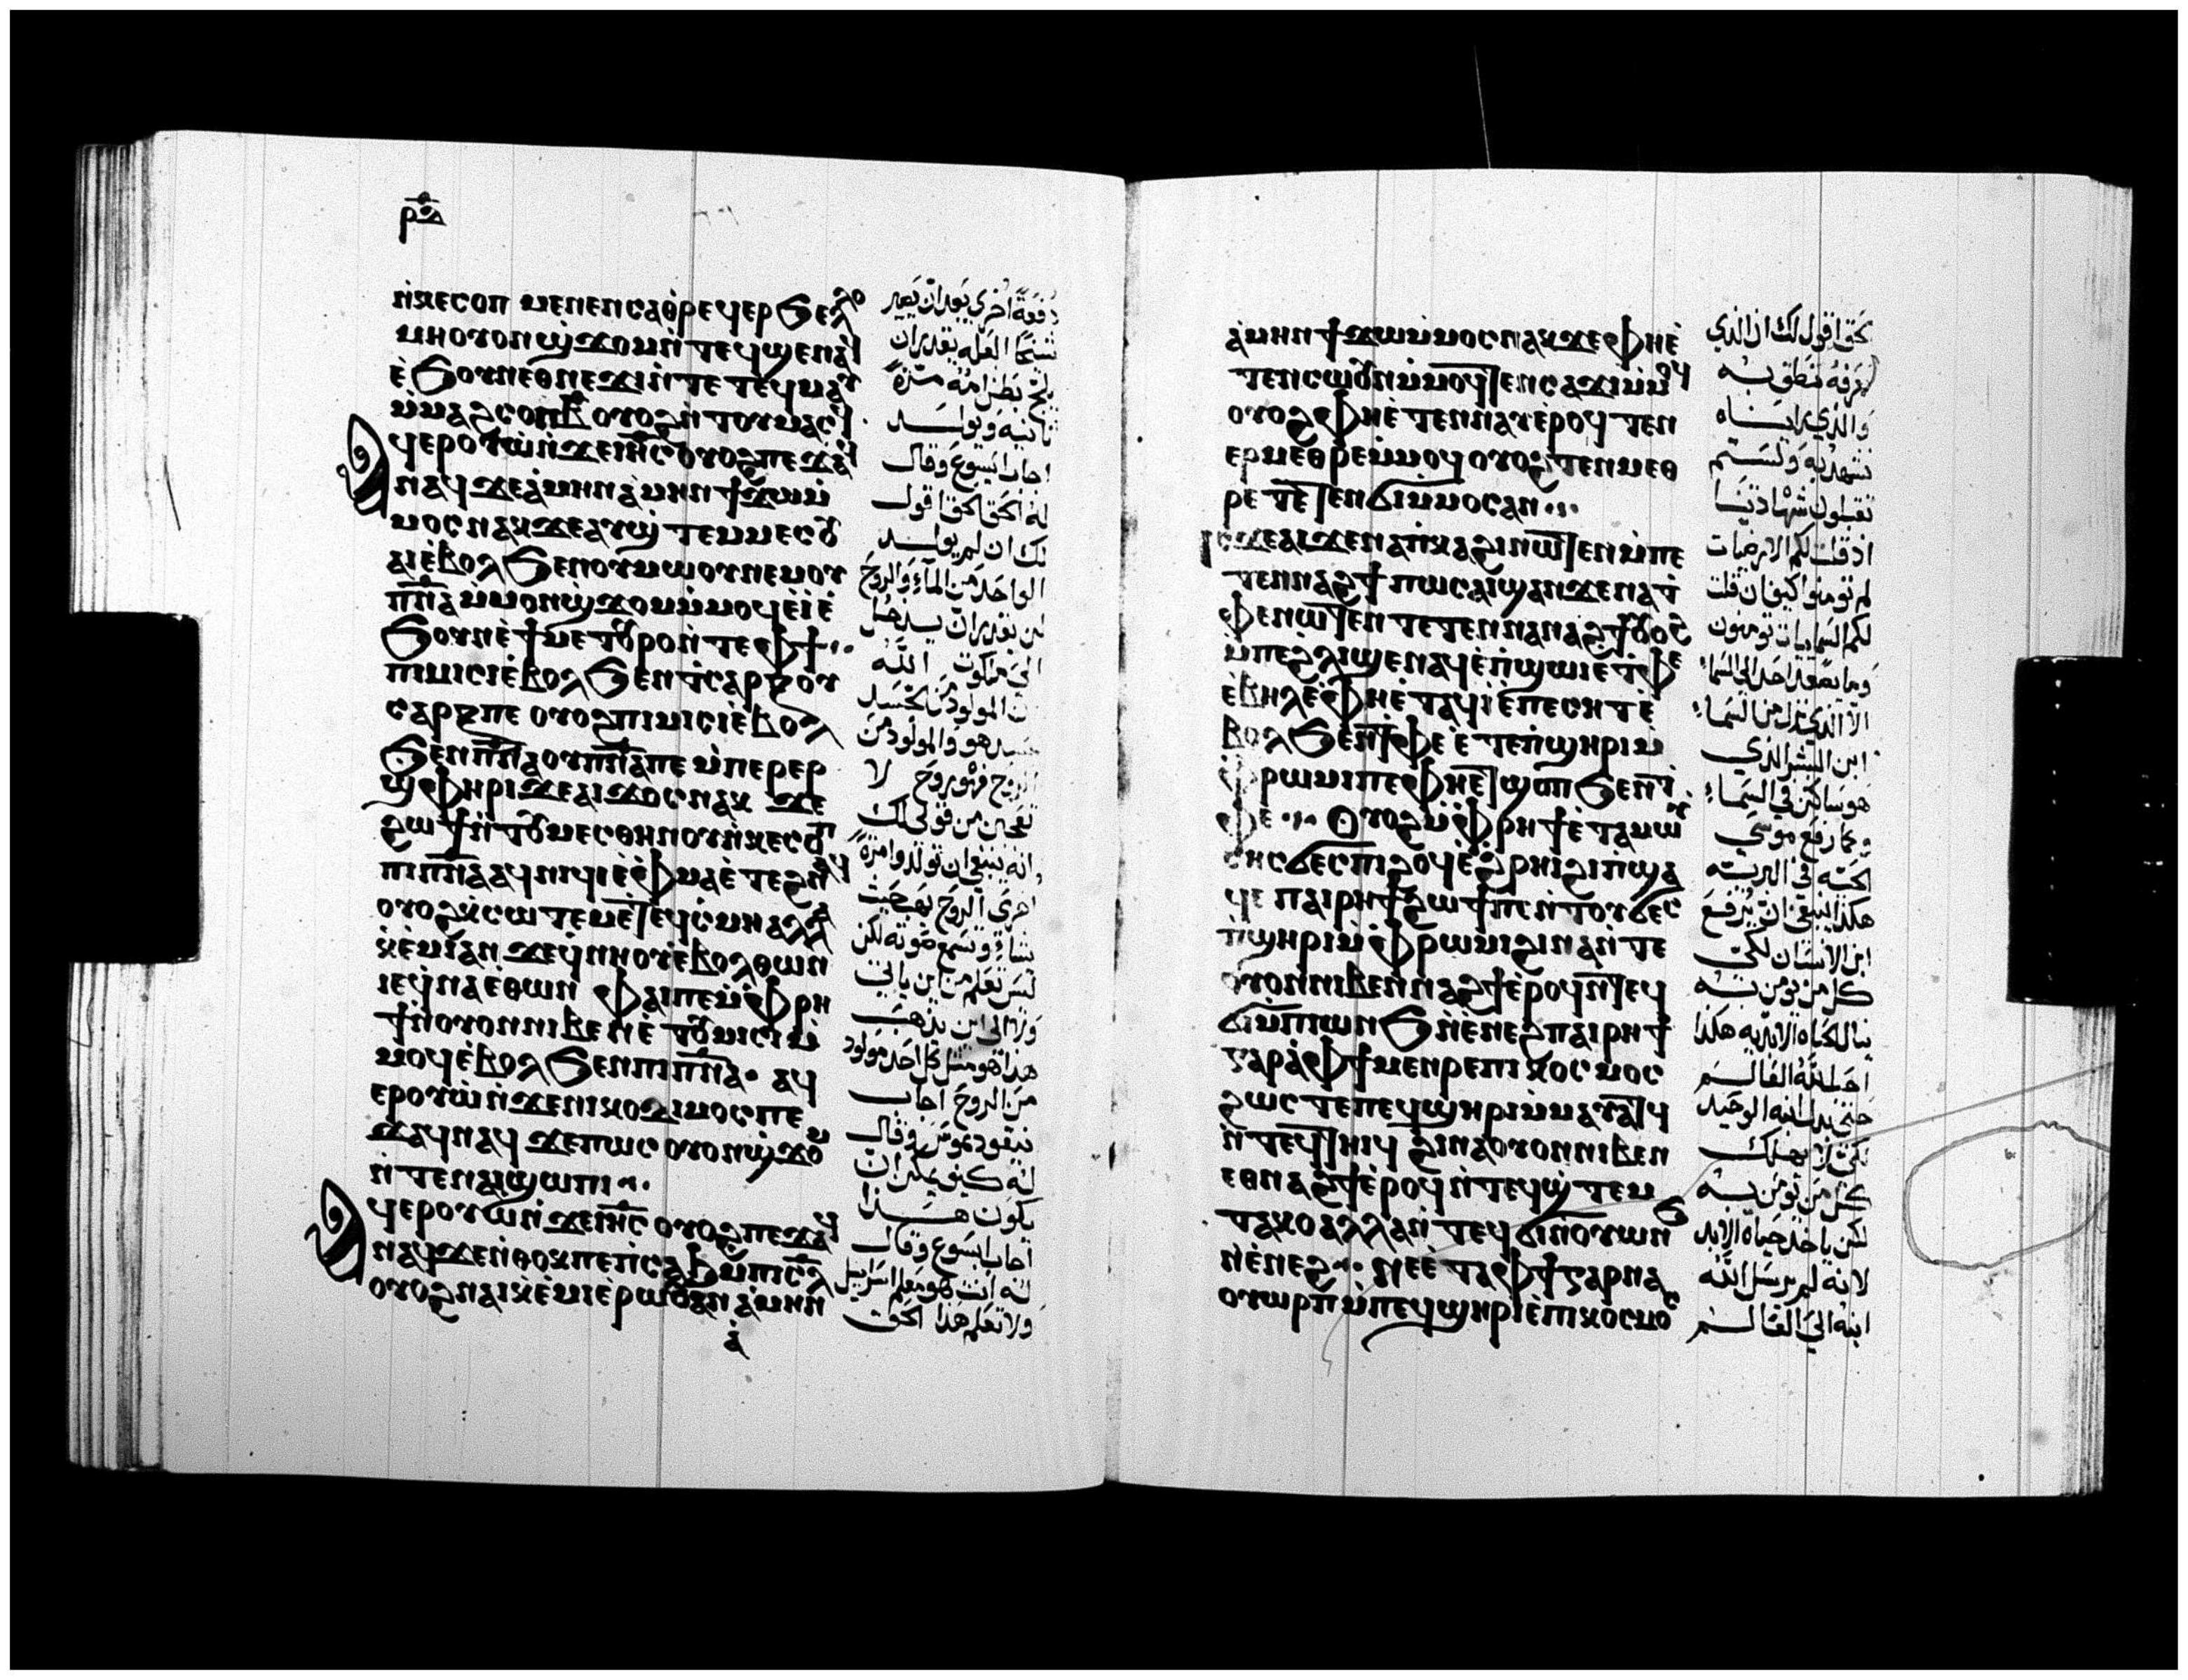 ⲣⲝ̅ⲇ̅
ⲛ̀ⲕⲉⲥⲟⲡ ⲙⲉⲛⲉⲛⲥⲁⲑⲣⲉϥⲉⲣϧⲉⲗⲗⲟ
ⲙⲏⲟⲩⲟⲛϣ̀ϫⲟⲙⲛ̀ⲧⲉϥϣⲉⲛⲁϥ
ⲉ̀ϧⲟⲩⲛⲉⲑⲛⲉϫⲓⲛ̀ⲧⲉⲧⲉϥⲙⲁⲩ
ⲙ̀ⲙⲁϩⲥⲟⲡⲃ̅ⲟⲩⲟϩⲛ̀ⲧⲟⲩⲙⲁⲥϥ
ⲁϥⲉⲣⲟⲩⲱ̀ⲛ̀ϫⲉⲓⲏ̅ⲥ̅ⲟⲩⲟϩⲡⲉϫⲁϥ
ⲛⲁϥϫⲉⲁ̀ⲙⲏⲛⲁ̀ⲙⲏⲛϯϫⲱⲙ̀
ⲙⲟⲥⲛⲁⲕϫⲉⲁⲩϣ̀ⲧⲉⲙⲙⲉⲥⲟⲩ
ⲁⲓⲉ̀ⲃⲟⲗϧⲉⲛⲟⲩⲙⲱⲟⲩⲛⲉⲙⲟⲩ
ⲡ̅ⲛ̅ⲁ̅ⲙ̀ⲙⲟⲛϣ̀ϫⲟⲙⲙ̀ⲙⲟϥⲉ̀ⲓ̀ⲉ̀
ϧⲟⲩⲛⲉ̀ϯⲙⲉⲧⲟⲩⲣⲟⲛ̀ⲧⲉⲫϯ
ⲡⲓⲙⲓⲥⲓⲉ̀ⲃⲟⲗϧⲉⲛⲧ̀ⲥⲁⲣⲝⲟⲩ
ⲥⲁⲣⲝⲡⲉ ⲟⲩⲟϩⲡⲓⲙⲓⲥⲓⲉ̀ⲃⲟⲗ
ϧⲉⲛⲡ̅ⲛ̅ⲁ̅ⲟⲩⲡ̅ⲛ̅ⲁ̅ⲡⲉ ⲙ̀ⲡⲉⲣⲉⲣ
ϣ̀ⲫⲏⲣⲓϫⲉⲁⲓϫⲟⲥⲛⲁⲕ ϫⲉ
ϩⲱϯⲛ̀ⲧⲟⲩⲙⲉⲥⲑⲏⲛⲟⲩⲛ̀ⲕⲉⲥⲟⲡ
ⲡⲓⲡ̅ⲛ̅ⲁ̅ⲁϥⲛⲓϥⲓⲉ̀ⲫⲙⲁⲉ̀ⲧⲉϩⲛⲁϥ
ⲟⲩⲟϩⲕ̀ⲥⲱⲧⲉⲙⲉ̀ⲧⲉϥⲥ̀ⲙⲏⲁⲗⲗⲁ
ⲕ̀ⲉ̀ⲙⲓⲁⲛ ϫⲉϥ̀ⲛⲏⲟⲩⲉ̀ⲃⲟⲗⲑⲱⲛ
ⲓⲉϥ̀ⲛⲁⲉ̀ⲑⲱⲛ ⲫⲁⲓⲡⲉⲙ̀ⲫⲣⲏ
ϯⲛ̀ⲟⲩⲟⲛⲛⲓⲃⲉⲛⲉ̀ⲧⲟⲩⲙⲓⲥⲓⲙ̀
ⲙⲟϥⲉ̀ⲃⲟⲗϧⲉⲛⲡⲓⲡ̅ⲛ̅ⲁ̅· ⲁϥ
ⲉⲣⲟⲩⲱ̀ⲛ̀ϫⲉⲛⲓⲕⲟⲇⲓⲙⲟⲥⲡⲉ
ϫⲁϥⲛⲁϥ ϫⲉⲡⲱⲥ ⲟⲩⲟⲛϣ̀ϫⲟⲙ
ⲛ̀ⲧⲉⲛⲁⲓϣⲱⲡⲓ
ⲁϥⲉⲣⲟⲩⲱⲛ̀ϫⲉⲓⲏ̅ⲥ̅ ⲟⲩⲟϩⲡⲉϫⲁϥ
ⲛⲁϥϫⲉⲛ̀ⲑⲟⲕⲡⲉⲡ̀ⲥⲁϧⲙ̀ⲡⲓⲥ̅ⲗ̅
ⲟⲩⲟϩⲛⲁⲓⲕ̀ⲉ̀ⲙⲓⲉ̀ⲣⲱⲟⲩⲁⲛ ⲁ̀ⲙⲏⲛ
ⲁ̀
دفعة اخرى بعد ان يصير
شيخا العله يقدر ان
يلج بطن امه مرة
ثانيه ويولد
اجاب ايسوع وقال
له الحق الحق اقول
لك ان لم يولد
الواحد من الماء والروح
لن يقدر ان يدخل
الى ملكوت الله
ان المولود من الجسد
جسد هو والمولود من
الروح فهو روح لا
تعجبن من قولي لك
انه ينبغي ان تولدوا مرة
اخرى الروح يهب حيث
يشاء وتسمع صوته لكن
لست تعلم من اين ياتي
ولا الى اين يذهب
هذا هو مثل كل احد مولود
من الروح اجاب
نيقوديموس وقال
له كيف يمكن ان
يكون هذا
اجاب ايسوع وقال
له انت هو معلم اسراييل
ولا تعلم هذا الحق
ⲁ̀ⲙⲏⲛϯϫⲱⲙ̀ⲙⲟⲥⲛⲁⲕϫⲉⲫⲏⲉ̀
ⲧⲉⲛⲥⲱⲟⲩⲛⲙ̀ⲙⲟϥⲧⲉⲛⲥⲁϫⲓⲙ̀ⲙⲟϥ
ⲟⲩⲟϩⲫⲏⲉ̀ⲧⲉⲛⲛⲁⲩⲉ̀ⲣⲟϥ ⲧⲉⲛ
ⲉⲣⲙⲉⲑⲣⲉⲙ̀ⲙⲟϥ ⲟⲩⲟϩⲧⲉⲛⲙⲉⲑ
ⲣⲉ ⲧⲉⲧⲉⲛϭⲓⲙ̀ⲙⲟⲥⲁⲛ
ⲓⲥϫⲉⲁⲓϫⲉⲛⲁⲡ̀ⲕⲁϩⲓⲛⲱⲧⲉⲛⲙ̀ⲡⲉ
ⲧⲉⲛⲛⲁϩϯ ⲡⲱⲥⲁⲓϣⲁⲛϫⲉⲛⲁⲧ̀
ⲫⲉⲛⲱⲧⲉⲛ ⲧⲉⲧⲉⲛⲛⲁⲛⲁϩϯⲟⲩⲟϩ
ⲙ̀ⲡⲉϩⲗⲓϣⲉⲛⲁϥⲉ̀ⲡ̀ϣⲱⲓⲉ̀ⲧ̀ⲫⲉ
ⲉ̀ⲃⲏⲗⲉ̀ⲫⲏⲉ̀ⲧⲁϥⲓ̀ⲉ̀ⲡⲉⲥⲏⲧⲉ̀
ⲃⲟⲗϧⲉⲛⲧ̀ⲫⲉ ⲉ̀ⲧⲉⲡ̀ϣⲏⲣⲓⲙ̀
ⲫⲣⲱⲙⲓⲡⲉⲫⲏⲉⲧϣⲟⲡϧⲉⲛⲧ̀
ⲫⲉ ⲟⲩⲟϩⲙ̀ⲫⲣⲏϯⲉ̀ⲧⲁⲙⲱⲩ̈
ⲥⲏⲥϭⲉⲥⲡⲓϩⲟϥⲉ̀ϩ̀ⲣⲏⲓϩⲓⲡϣⲁ
ϥⲉ ⲡⲁⲓⲣⲏϯϩⲱϯⲡⲉⲛ̀ⲧⲟⲩϭⲉⲥ
ⲡ̀ϣⲏⲣⲓⲙ̀ⲫⲣⲱⲙⲓϩⲓⲛⲁⲛ̀ⲧⲉ
ⲟⲩⲟⲛⲛⲓⲃⲉⲛⲛⲁϩϯⲉ̀ⲣⲟϥⲛ̀ⲧⲉϥ
ϭⲓⲙ̀ⲡⲱⲛϧⲛ̀ⲉ̀ⲛⲉϩⲡⲁⲓⲣⲏϯ
ⲅⲁⲣⲁ̀ⲫϯⲙⲉⲛⲣⲉⲡⲓⲕⲟⲥⲙⲟⲥ
ϩⲱⲥⲧⲉⲡⲉϥϣⲏⲣⲓⲙ̀ⲙⲁⲩⲁⲧϥ
ⲛ̀ⲧⲉϥⲧⲏⲓϥ ϩⲓⲛⲁⲟⲩⲟⲛⲛⲓⲃⲉⲛ
ⲉⲑⲛⲁϩϯⲉ̀ⲣⲟϥⲛ̀ⲧⲉϥϣ̀ⲧⲉⲙ
ⲧⲁⲕⲟⲁⲗⲗⲁⲛ̀ⲧⲉϥϭⲓⲛ̀ⲟⲩⲱⲛϧ
ⲛ̀ⲉ̀ⲛⲉϩ ⲛⲉⲉ̀ⲧⲁⲫϯⲅⲁⲣⲛⲁ
ⲟⲩⲱⲣⲡ ⲙ̀ⲡⲉϥϣⲏⲣⲓⲉ̀ⲡⲓⲕⲟⲥⲙⲟⲥ
بحق اقول لك ان الذي
نعرفه ننطق به
والذي رايناه
نشهد به ولستم
تقبلون شهادتنا
اذ قلت لكم الارضيات
لم تومنوا كيف ان قلت
لكم السماويات تومنون
وما صعد احد الى السماء
الا الذي نزل من السماء
ابن البشر الذي
هو ساكن في السماء
وكما رفع موسى
الحيه في البريه
هكذا ينبغي ان يرفع
ابن الانسان لكي
كل من يومن به
ينال الحياه الابديه هكذا
احب الله العالم
حتى بدل ابنه الوحيد
لكي لا يهلك
كل من يومن به
لكن ياخذ حياه الابد
لانه لم يرسل الله
ابنه الى العالم